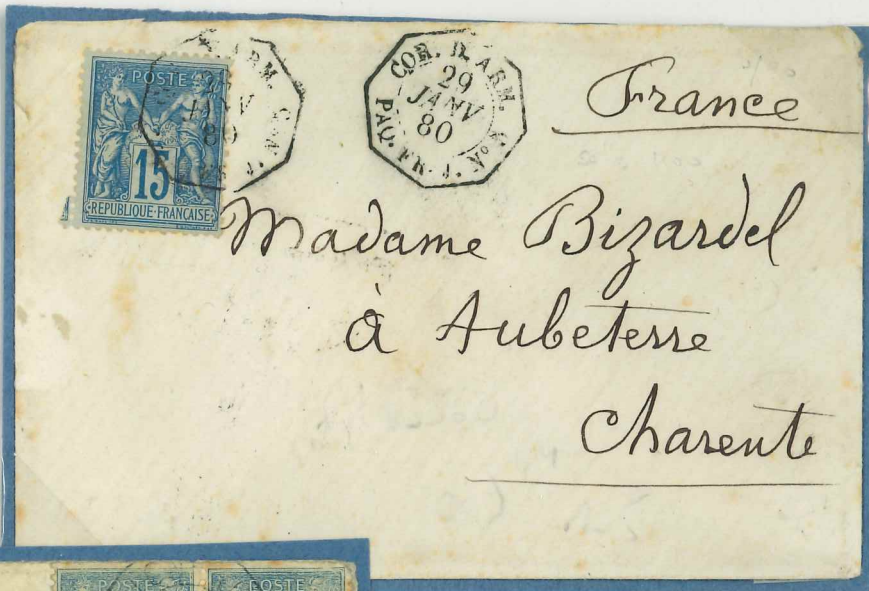 POSTE
15
RÉPUBLIQUE FRANÇAISE
ARM.
80
COR. D. ARM.
29
JANV
80
PAQ. FR. J. No
France
Madame Bizardel
à Aubeterre
Charente
POSTE
POSTE